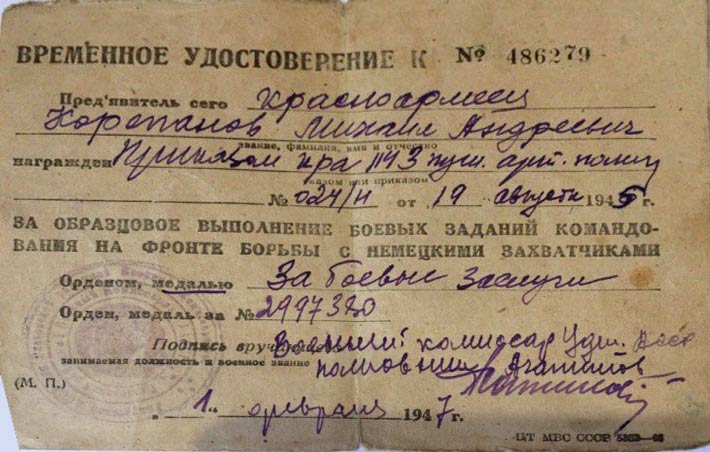 ВРЕМЕННОЕ УДОСТОВЕРЕНИЕ К № 486279
Пред'явитель сего красноармеец
Корепанов Михаил Андреевич
звание, фамилия, имя и отчество
награжден Приказом 1193 пуш. арт. полку
указом или приказом
№ 024/н от 19 августа 1945 г.
ЗА ОБРАЗЦОВОЕ ВЫПОЛНЕНИЕ БОЕВЫХ ЗАДАНИЙ КОМАНДО-
ВАНИЯ НА ФРОНТЕ БОРЬБЫ С НЕМЕЦКИМИ ЗАХВАТЧИКАМИ
Орденом, медалью За боевые заслуги
Орден, медаль за № 2997380
Подпись вручившего Военный комиссар Удм. АССР
занимаемая должность и военное звание полковник
(М. П.)
„ 1 „ февраля 1947 г.
ЦТ МВС СССР